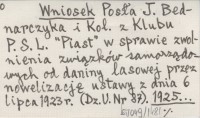 Wniosek Posła J. Bed-
narczyka i Kol. z Klubu
P.S.L. "Piast" w sprawie zwol-
nienia związków samorządo-
wych od daniny lasowej przez
nowelizację ustawy z dnia 6
lipca 1923 r. (Dz.U. Nr 87). 1925...